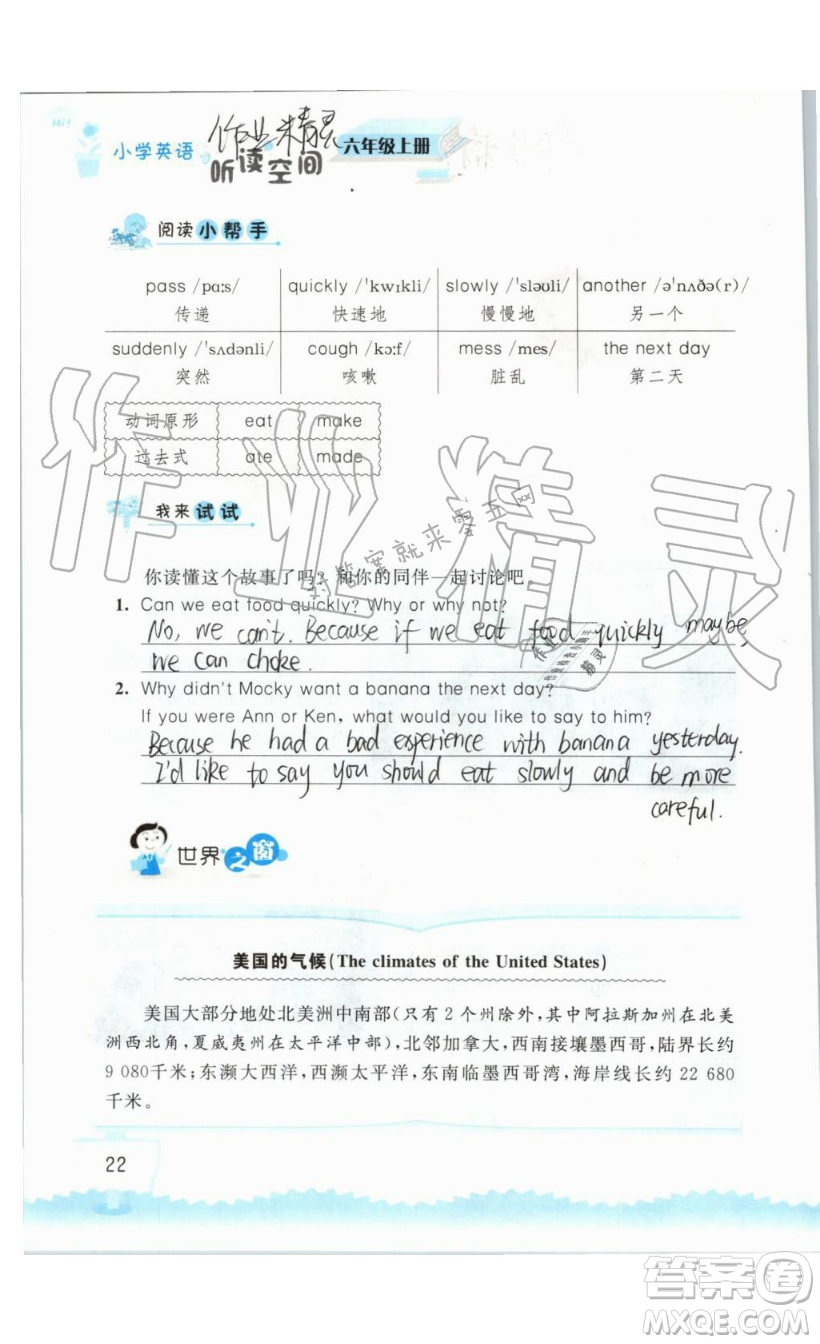 Hi!
小学英语
作业精灵
听读空间
六年级上册
阅读小帮手
pass /pɑːs/ quickly /ˈkwɪkli/ slowly /ˈsləʊli/ another /əˈnʌðə(r)/
传递 快速地 慢慢地 另一个
suddenly /ˈsʌdənli/ cough /kɔːf/ mess /mes/ the next day
突然 咳嗽 脏乱 第二天
动词原形 eat make
过去式 ate made
我来试试
对答案就来零五网
你读懂这个故事了吗？和你的同伴一起讨论吧。
1. Can we eat food quickly? Why or why not?
No, we can't. Because if we eat food quickly maybe
we can choke.
作业精灵
2. Why didn't Mocky want a banana the next day?
If you were Ann or Ken, what would you like to say to him?
Because he had a bad experience with banana yesterday.
I'd like to say you should eat slowly and be more
careful.
作业精灵
世界之窗
美国的气候(The climates of the United States)
美国大部分地处北美洲中南部(只有 2 个州除外，其中阿拉斯加州在北美
洲西北角，夏威夷州在太平洋中部)，北邻加拿大，西南接壤墨西哥，陆界长约
9 080千米；东濒大西洋，西濒太平洋，东南临墨西哥湾，海岸线长约 22 680
千米。
22
答案圈
MXQE.COM